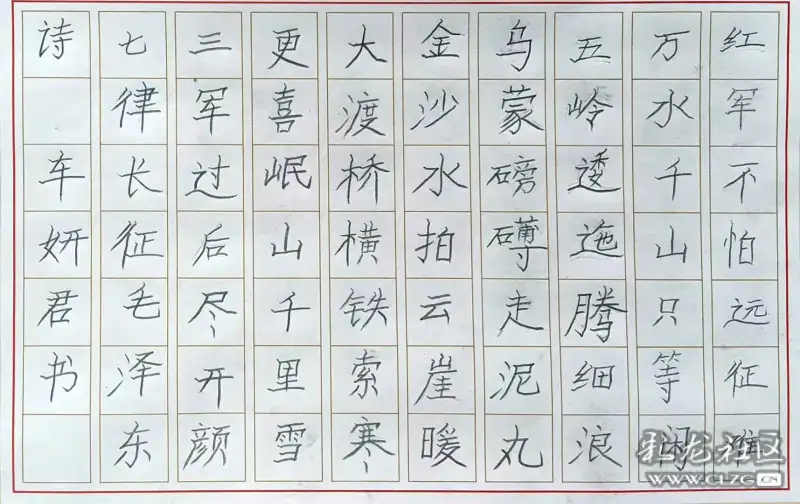 红军不怕远征难
万水千山只等闲
五岭逶迤腾细浪
乌蒙磅礴走泥丸
金沙水拍云崖暖
大渡桥横铁索寒
更喜岷山千里雪
三军过后尽开颜
七律长征毛泽东
诗 车妍君书
CLZG.CN